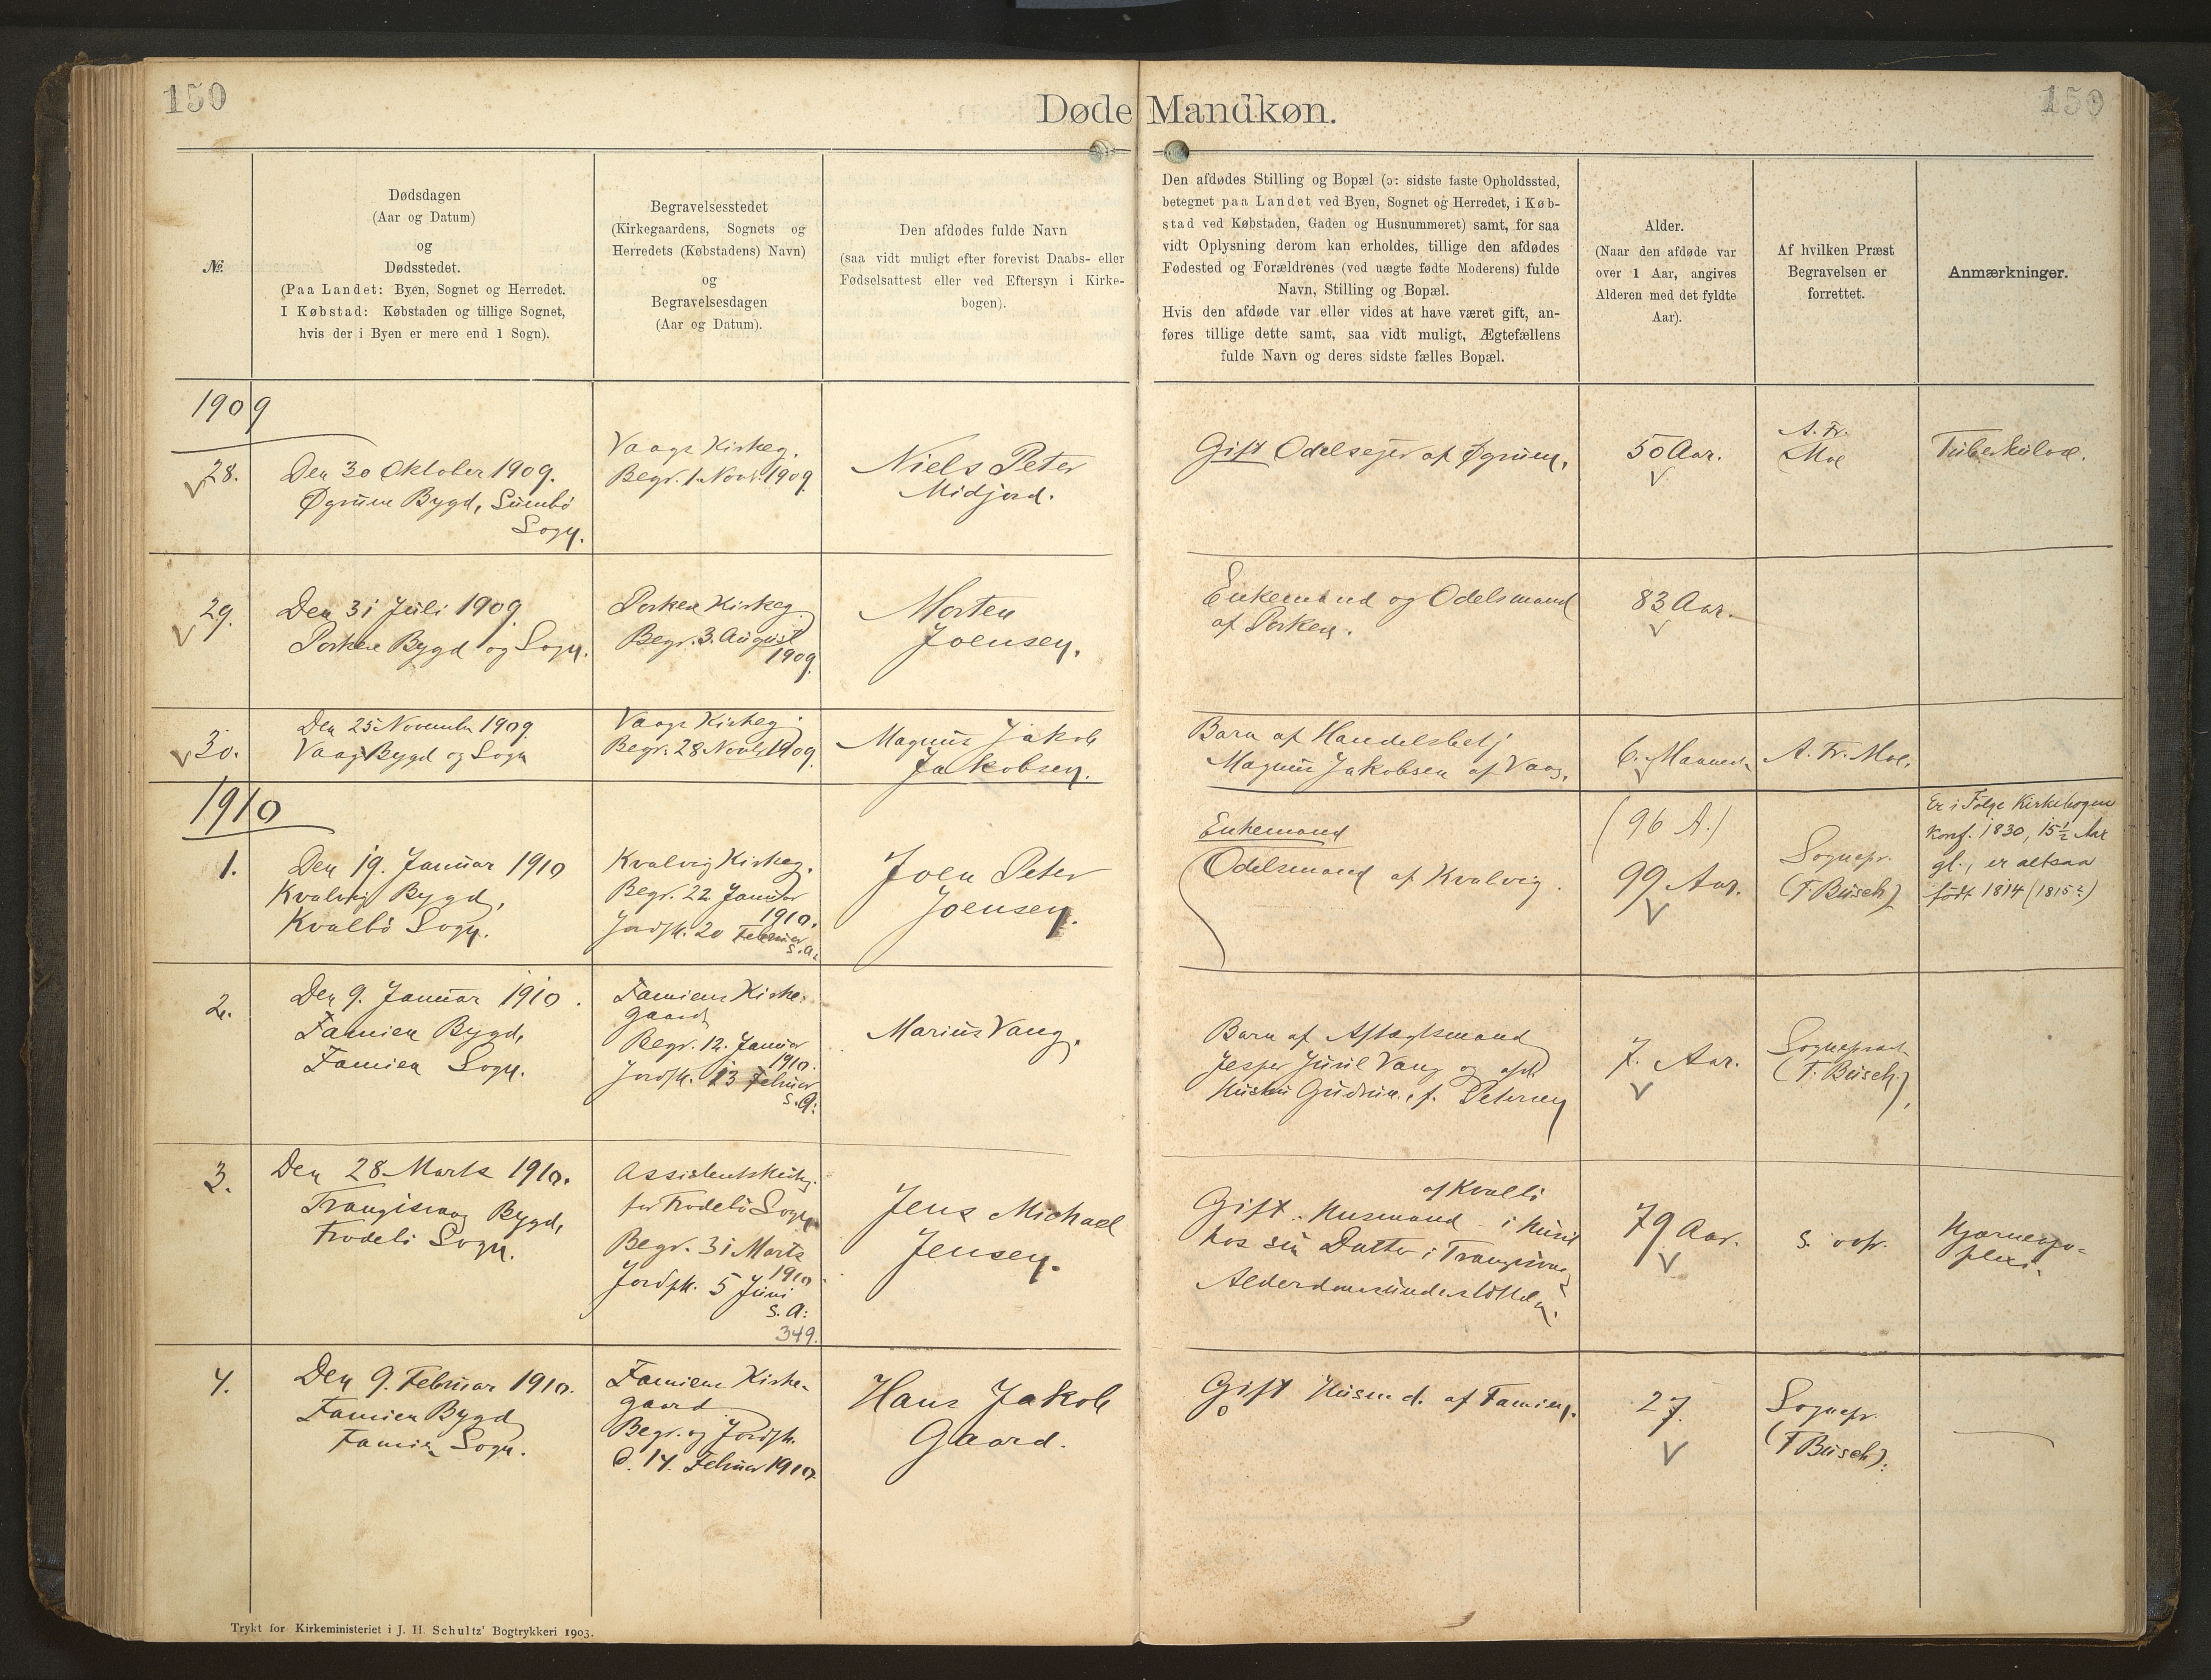 150
150
Døde Mandkøn.
№
Dødsdagen
(Aar og Datum)
og
Dødsstedet.
(Paa Landet: Byen, Sognet og Herredet.
I Købstad: Købstaden og tillige Sognet,
hvis der i Byen er mere end 1 Sogn).
Begravelsesstedet
(Kirkegaardens, Sognets og
Herredets (Købstadens) Navn)
og
Begravelsesdagen
(Aar og Datum).
Den afdødes fulde Navn
(saa vidt muligt efter forevist Daabs- eller
Fødselsattest eller ved Eftersyn i Kirke-
bogen).
Den afdødes Stilling og Bopæl (ɔ: sidste faste Opholdssted,
betegnet paa Landet ved Byen, Sognet og Herredet, i Køb-
stad ved Købstaden, Gaden og Husnummeret) samt, for saa
vidt Oplysning derom kan erholdes, tillige den afdødes
Fødested og Forældrenes (ved uægte fødte Moderens) fulde
Navn, Stilling og Bopæl.
Hvis den afdøde var eller vides at have været gift, an-
føres tillige dette samt, saa vidt muligt, Ægtefællens
fulde Navn og deres sidste fælles Bopæl.
Alder.
(Naar den afdøde var
over 1 Aar, angives
Alderen med det fyldte
Aar).
Af hvilken Præst
Begravelsen er
forrettet.
Anmærkninger.
1909
28.
Den 30 Oktober 1909.
Øgrum Bygd, Sumbø
Sogn.
Vaags Kirkeg.
Begr. 1. Novb. 1909
Niels Peter
Midjord.
Gift Odelsejer af Øgrum.
50 Aar.
A. Fr.
Moe
Tuberkulose.
29.
Den 31 Juli 1909
Porkere Bygd og Sogn.
Porkere Kirkeg.
Begr. 3. August
1909.
Morten
Joensen.
Enkemand og Odelsmand
af Porkere.
83 Aar.
30.
Den 25 November 1909.
Vaag Bygd og Sogn
Vaags Kirkeg.
Begr. 28 Novb. 1909.
Magnus Jakob
Jakobsen.
Barn af Handelsbetj
Magnus Jakobsen af Vaag.
6. Maaneder
A. Fr. Moe.
1910
1.
Den 19. Januar 1910
Kvalvig Bygd,
Kvalbø Sogn.
Kvalvig Kirkeg.
Begr. 22. Januar
1910.
Jordfk. 20 Februar
s. A.
Joen Peter
Joensen.
Enkemand
Odelsmand af Kvalvig.
(96 A.)
99 Aar.
Sognepr.
(F. Busch)
Er i Følge Kirkebogen
Konf. 1830, 15½ Aar
gl., er altsaa
født 1814 (1815?)
2.
Den 9. Januar 1910.
Famien Bygd,
Famien Sogn.
Famiens Kirke-
gaard
Begr. 12. Januar
1910.
Jordfk. 13 Februar
s. A:
Marius Vang.
Barn af Aftægtsmand
Jesper Juul Vang og afd.
Hustru Gudrun, f. Petersen
7. Aar.
Sognepræst
(F. Busch),
3.
Den 28 Marts 1910.
Trangisvaag Bygd,
Frodebø Sogn.
Assistentskirkeg.
for Frodebø Sogn
Begr. 31 Marts
1910
Jordfk. 5 Juni
s. A:
349.
Jens Michael
Jensen.
af Kvalbø
Gift. Husmand - i Huset
hos sin Datter i Trangisvaag
Alderdomsunderstøttelse.
79 Aar.
s. ovfr.
Hjærneapo-
plexi.
4.
Den 9. Februar 1910.
Famien Bygd
Famien Sogn.
Famiens Kirke-
gaard
Begr. og Jordfk.
d. 14. Februar 1910.
Hans Jakob
Gaard.
Gift Husmd. af Famien.
27.
Sognepr.
(F Busch).
Trykt for Kirkeministeriet i J. H. Schultz' Bogtrykkeri 1903.